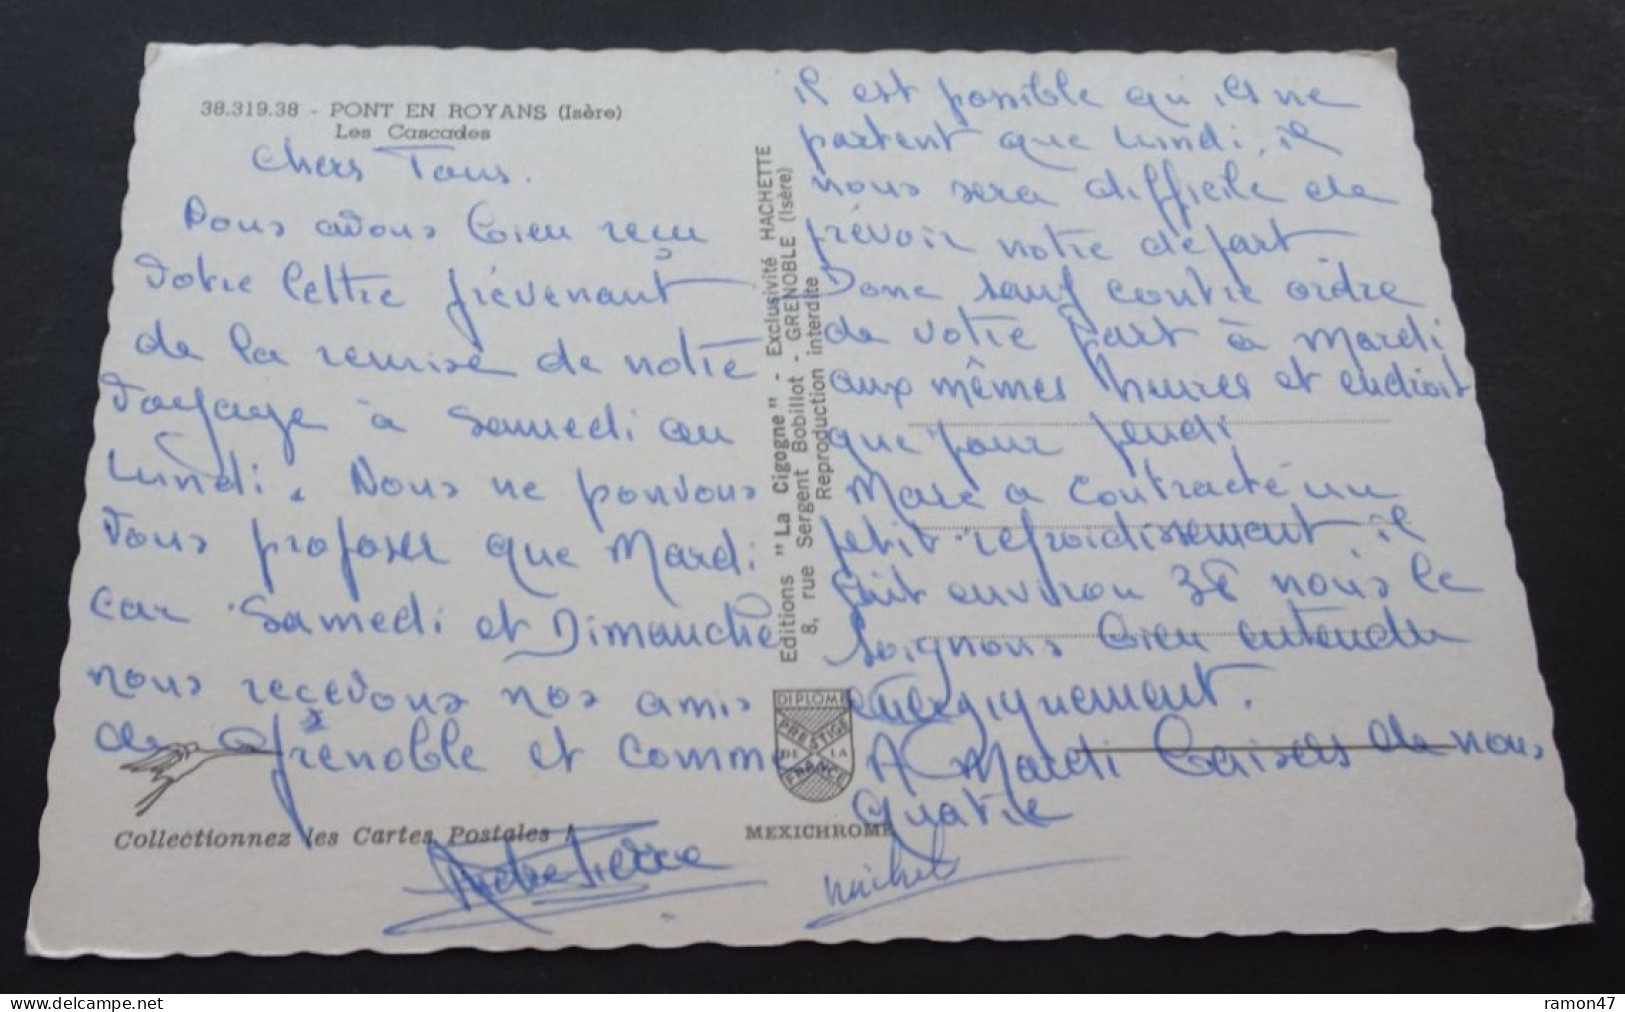 38.319.38 - PONT EN ROYANS (Isère)
Les Cascades
Chers Tous.
Nous avons bien reçu
votre lettre prévenant
de la remise de notre
voyage à Samedi ou
lundi. Nous ne pouvons
vous proposer que Mardi
car Samedi et Dimanche
nous recevons nos amis
de Grenoble et comme
il est possible qu'ils ne
partent que lundi, il
nous sera difficile de
prévoir notre départ.
Donc sauf contre ordre
de votre part à Mardi
aux mêmes heures et endroit
que pour jeudi
Marc a contracté un
petit refroidissement il
fait environ 38 nous le
soignons bien entendu
énergiquement.
A Mardi Baisers de nous
quatre
Pierre
Michel
Editions "La Cigogne" - Exclusivité HACHETTE
8, rue Sergent Bobillot - GRENOBLE (Isère)
Reproduction interdite
DIPLOME
PRESTIGE
DE LA
FRANCE
Collectionnez les Cartes Postales !
MEXICHROME
www.delcampe.net
ramon47